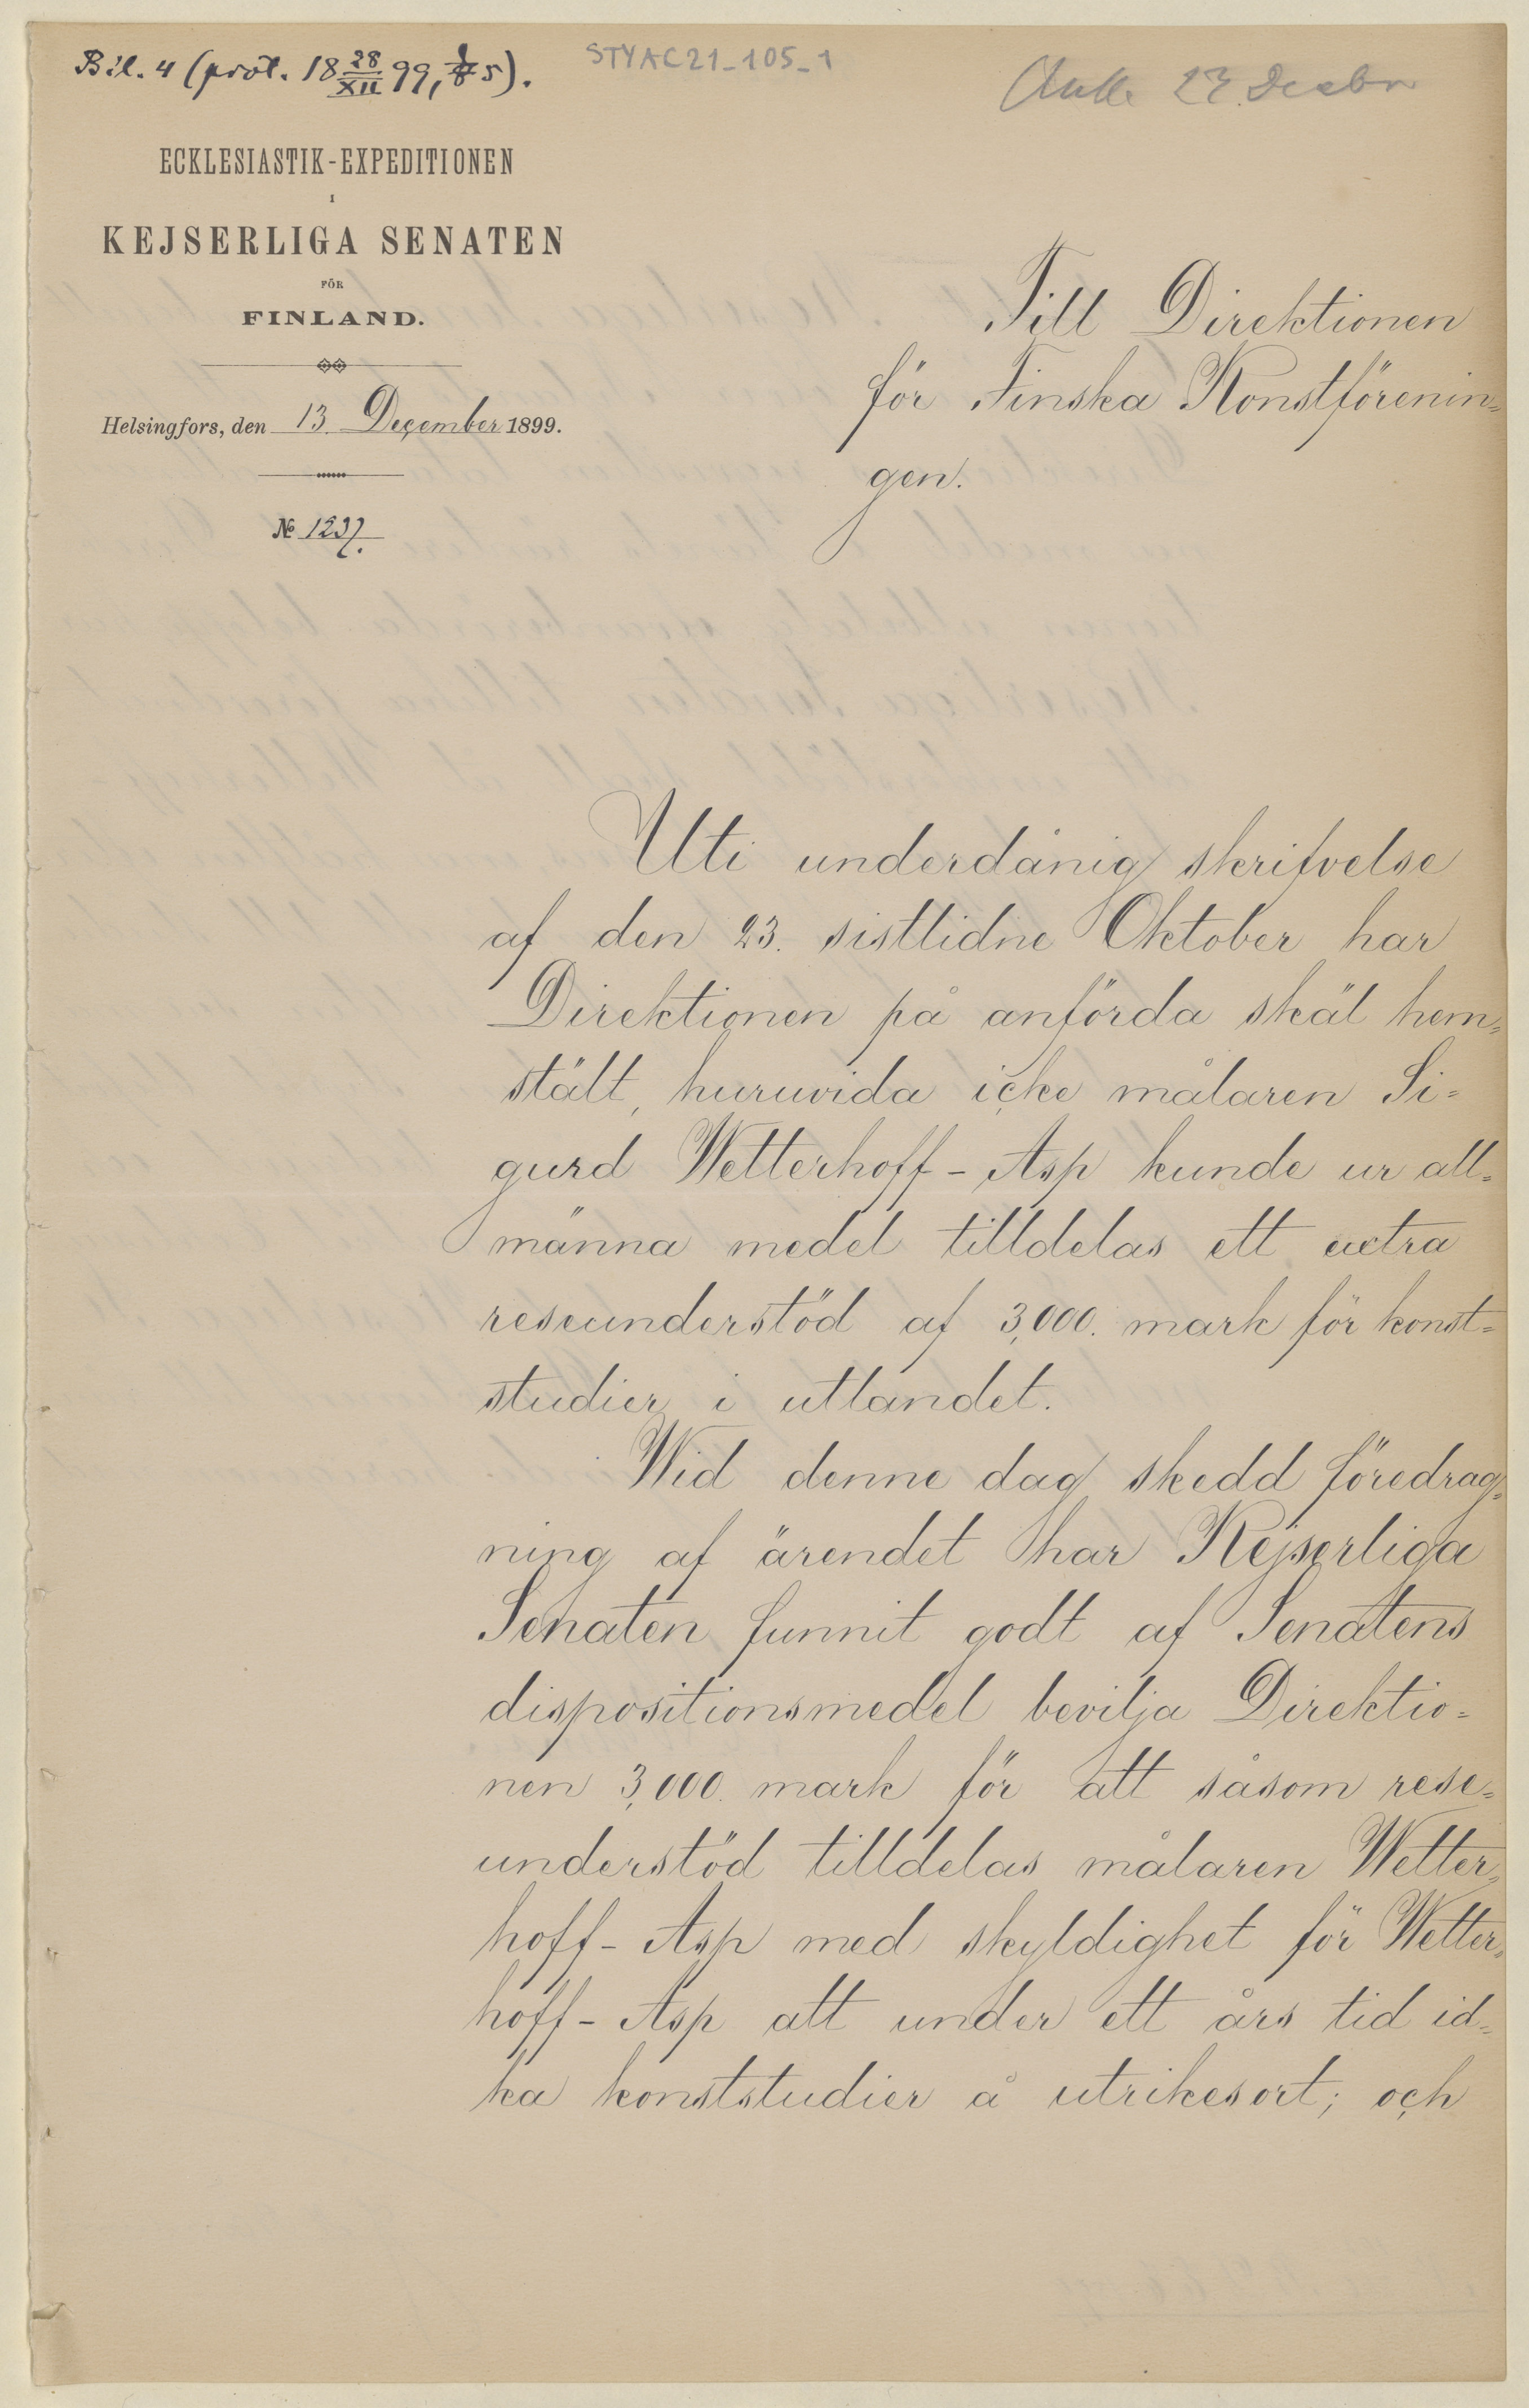 Bil. 4 (prot. 18 28/XII 99, § 5).
STYAC21_105_1
23 Decbr
ECKLESIASTIK-EXPEDITIONEN
I
KEJSERLIGA SENATEN
FÖR
FINLAND.
Helsingfors, den 13. December 1899.
№ 1237.
Till Direktionen
för Finska Konstförenin=
gen.
Uti underdånig skrifvelse
af den 23. sistlidne Oktober har
Direktionen på anförda skäl hem=
stält, huruvida icke målaren Si=
gurd Wetterhoff-Asp kunde ur all=
männa medel tilldelas ett extra
reseunderstöd af 3,000. mark för konst=
studier i utlandet.
Wid denne dag skedd föredrag=
ning af ärendet har Kejserliga
Senaten funnit godt af Senatens
dispositionsmedel bevilja Direktio=
nen 3,000. mark för att såsom rese=
understöd tilldelas målaren Wetter=
hoff-Asp med skyldighet för Wetter=
hoff-Asp att under ett års tid id=
ka konststudier å utrikesort; och